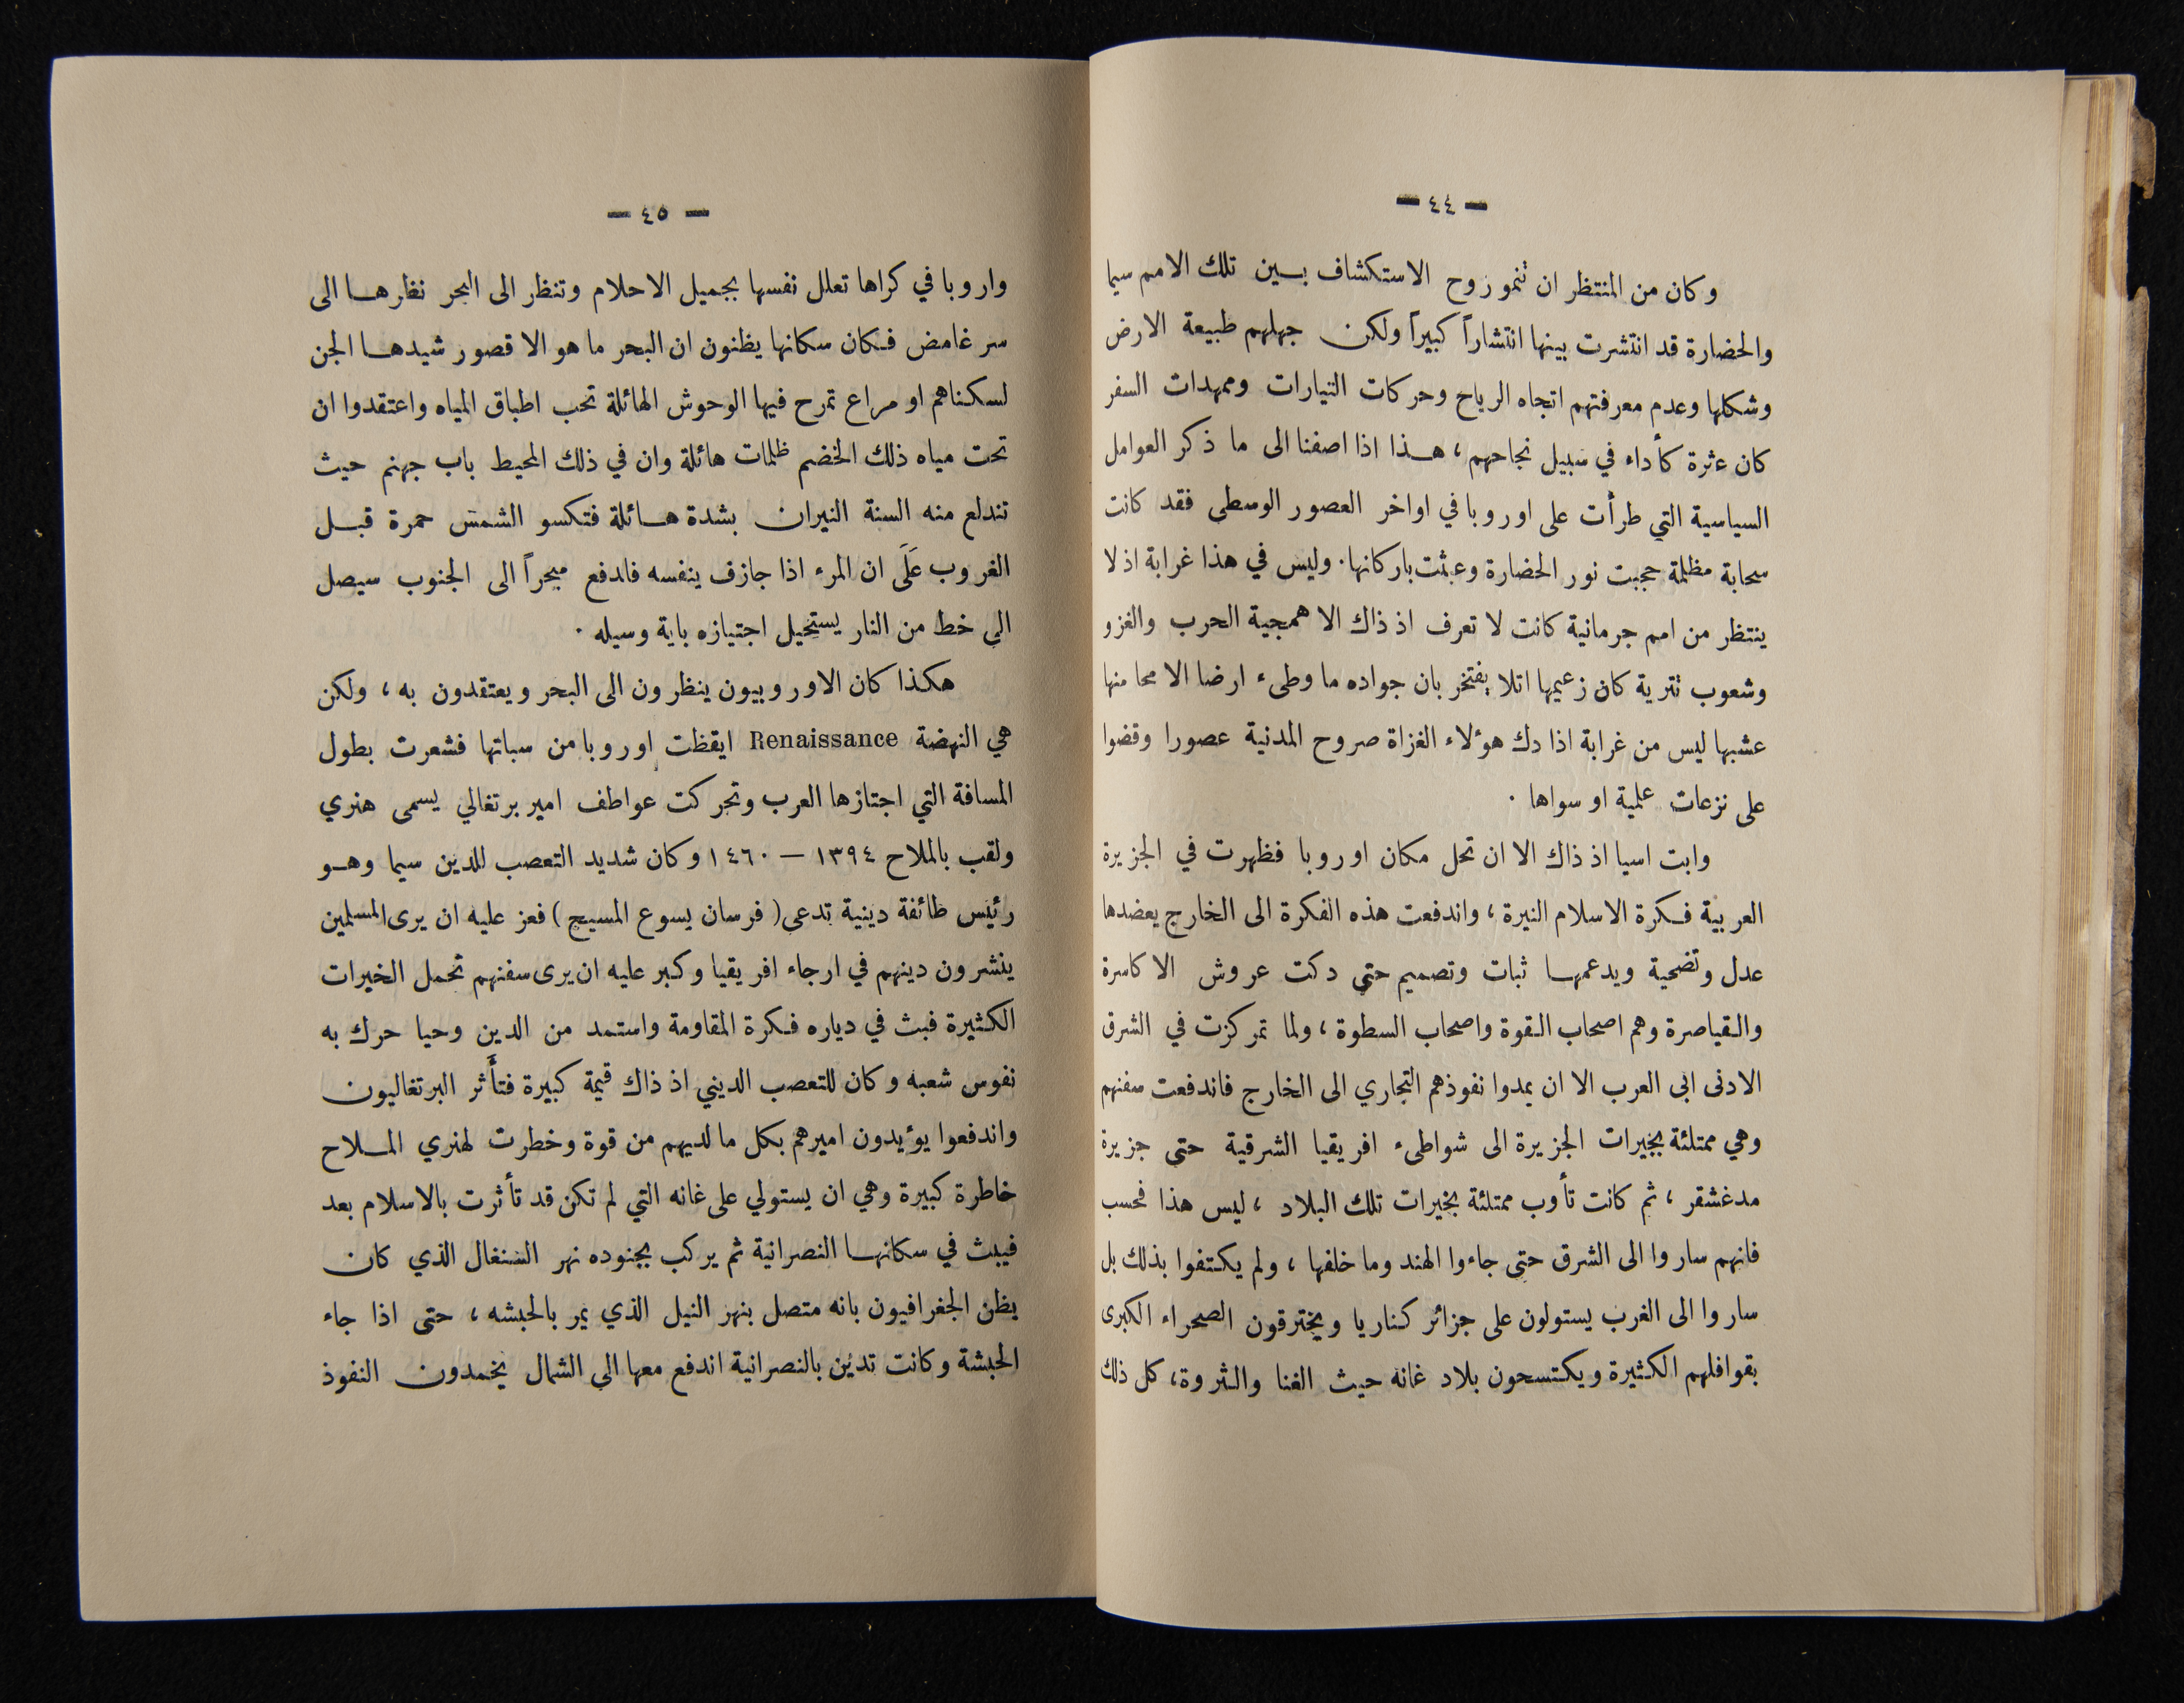 — ٤٤ —
وكان من المنتظر ان تنمو روح الاستكشاف بـين تلك الامم سيما
والحضارة قد انتشرت بينها انتشاراً كبيراً ولكن جهلهم طبيعة الارض
وشكلها وعدم معرفتهم اتجاه الرياح وحركات التيارات وممهدات السفر
كان عثرة كأداء في سبيل نجاحهم ، هـذا اذا اصفنا الى ما ذكر العوامل
السياسية التي طرأت على اوروبا في اواخر العصور الوسطى فقد كانت
سحابة مظلمة حجبت نور الحضارة وعبثت باركانها . وليس في هذا غرابة اذ لا
ينتظر من امم جرمانية كانت لا تعرف اذ ذاك الا همجية الحرب والغزو
وشعوب تترية كان زعيمها اتلا يفتخر بان جواده ما وطىء ارضا الا محا منها
عشبها ليس من غرابة اذا دك هؤلاء الغزاة صروح المدنية عصورا وقضوا
على نزعات علمية او سواها .
وابت اسيا اذ ذاك الا ان تحل مكان اوروبا فظهرت في الجزيرة
العربية فكرة الاسلام النيرة ، واندفعت هذه الفكرة الى الخارج يعضدها
عدل وتضحية ويدعمهـا ثبات وتصميم حتى دكت عروش الاكاسرة
والقياصرة وهم اصحاب القوة واصحاب السطوة ، ولما تمركزت في الشرق
الادنى ابى العرب الا ان يمدوا نفوذهم التجاري الى الخارج فاندفعت سفنهم
وهي ممتلئة بخيرات الجزيرة الى شواطىء افريقيا الشرقية حتى جزيرة
مدغشقر ، ثم كانت تأوب ممتلئة بخيرات تلك البلاد ، ليس هذا فحسب
فانهم ساروا الى الشرق حتى جاءوا الهند وما خلفها ، ولم يكتفوا بذلك بل
ساروا الى الغرب يستولون على جزائر كناريا ويخترقون الصحراء الكبرى
بقوافلهم الكثيرة ويكتسحون بلاد غانه حيث الغنا والثروة ، كل ذلك
— ٤٥ —
واروبا في كراها تعلل نفسها بجميل الاحلام وتنظر الى البحر نظرهـا الى
سر غامض فكان سكانها يظنون ان البحر ما هو الا قصور شيدهـا الجن
لسكناهم او مراع تمرح فيها الوحوش الهائلة تحب اطباق المياه واعتقدوا ان
تحت مياه ذلك الخضم ظلمات هائلة وان في ذلك المحيط باب جهنم حيث
تندلع منه السنة النيران بشدة هـائلة فتكسو الشمس حمرة قبـل
الغروب عَلَى ان المرء اذا جازف ينفسه فاندفع مبحراً الى الجنوب سيصل
الى خط من النار يستحيل اجتيازه باية وسيله .
هكذا كان الاوروبيون ينظرون الى البحر ويعتقدون به ، ولكن
هي النهضة Renaissance ايقظت اوروبا من سباتها فشعرت بطول
المسافة التي اجتازها العرب وتحركت عواطف امير برتغالي يسمى هنري
ولقب بالملاح ١٣٩٤ — ١٤٦٠ وكان شديد التعصب للدين سيما وهـو
رئيس طائفة دينية تدعى ( فرسان يسوع المسيح ) فعز عليه ان يرى المسلمين
ينشرون دينهم في ارجاء افريقيا وكبر عليه ان يرى سفنهم تحمل الخيرات
الكثيرة فبث في دياره فكرة المقاومة واستمد من الدين وحيا حرك به
نفوس شعبه وكان للتعصب الديني اذ ذاك قيمة كبيرة فتأَثر البرتغاليون
واندفعوا يؤيدون اميرهم بكل ما لديهم من قوة وخطرت لهنري المـلاح
خاطرة كبيرة وهي ان يستولي على غانه التي لم تكن قد تأثرت بالاسلام بعد
فيبث في سكانهـا النصرانية ثم يركب بجنوده نهر السنغال الذي كان
يظن الجغرافيون بانه متصل بنهر النيل الذي يمر بالحبشه ، حتى اذا جاء
الحبشة وكانت تدين بالنصرانية اندفع معها الى الشمال يخمدون النفوذ